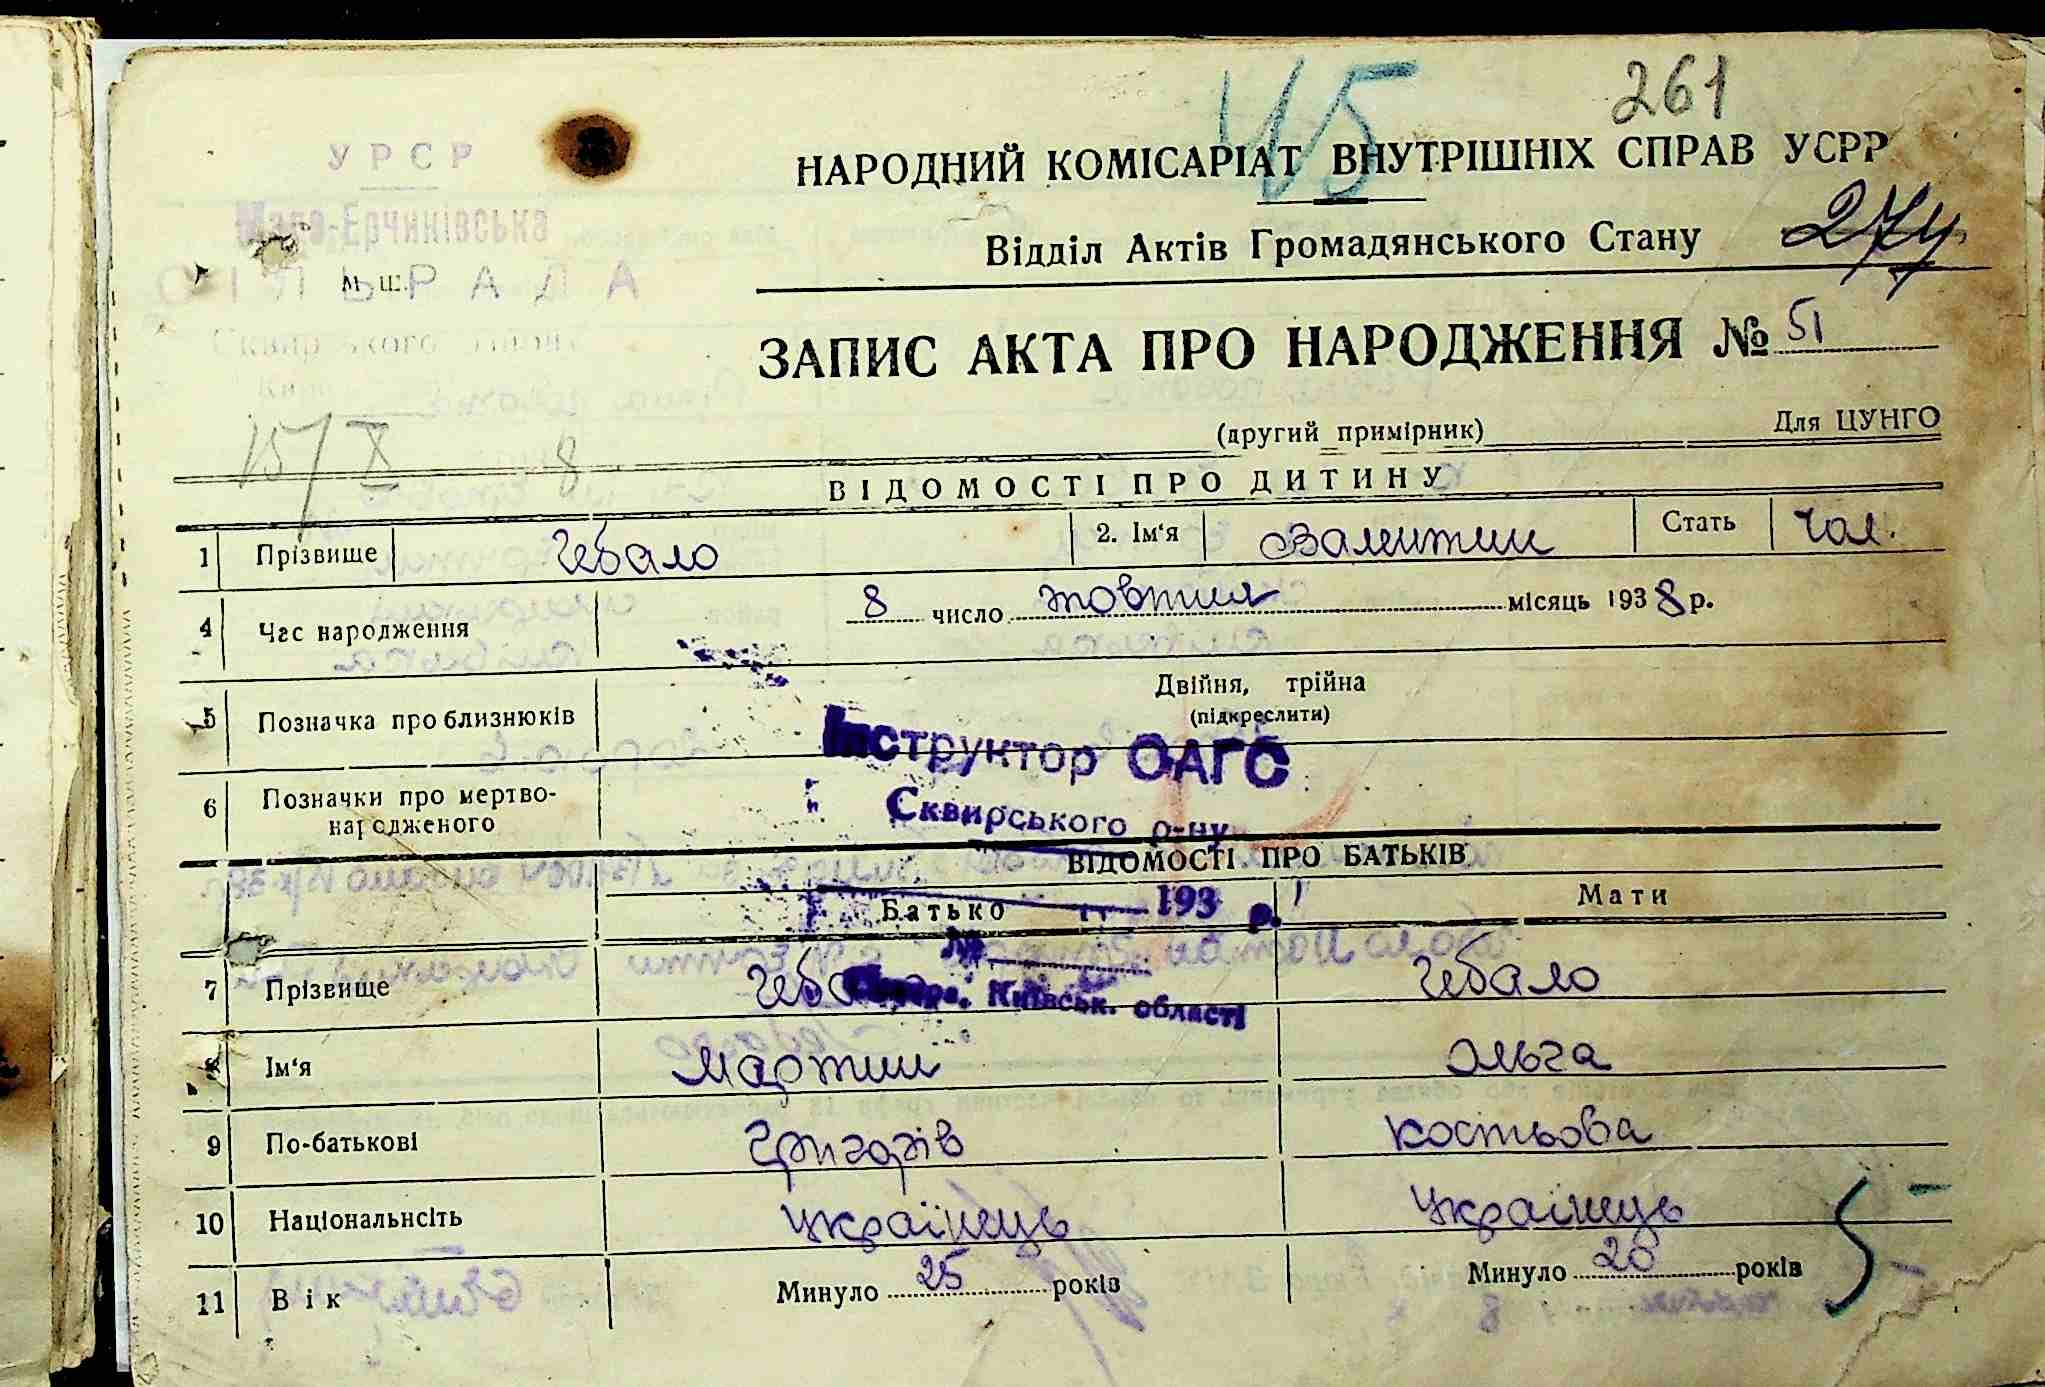 45
261
УРСР
НАРОДНИЙ КОМІСАРІАТ ВНУТРІШНІХ СПРАВ УСРР
Мало-Ерчиківська
Відділ Актів Громадянського Стану
274
СІЛЬРАДА
м. ш.
ЗАПИС АКТА ПРО НАРОДЖЕННЯ № 51
Сквирського
(другий примірник)
Для ЦУНГО
15/X 8
ВІДОМОСТІ ПРО ДИТИНУ
1 Прізвище Чебало 2. Ім'я Валентин Стать чол.
4 Час народження 8 число жовтня місяць 1938 р.
5 Позначка про близнюків Двійня, трійна
(підкреслити)
Інструктор ОАГС
6 Позначки про мертво-
народженого
Сквирського р-ну
ВІДОМОСТІ ПРО БАТЬКІВ
193 р.
Батько Мати
№
7 Прізвище Чебало Чебало
Київськ. області
8 Ім'я Мартин Ольга
9 По-батькові Григорів Костьова
10 Національнсіть Українець Українець
11 Вік Минуло 25 років Минуло 20 років
5